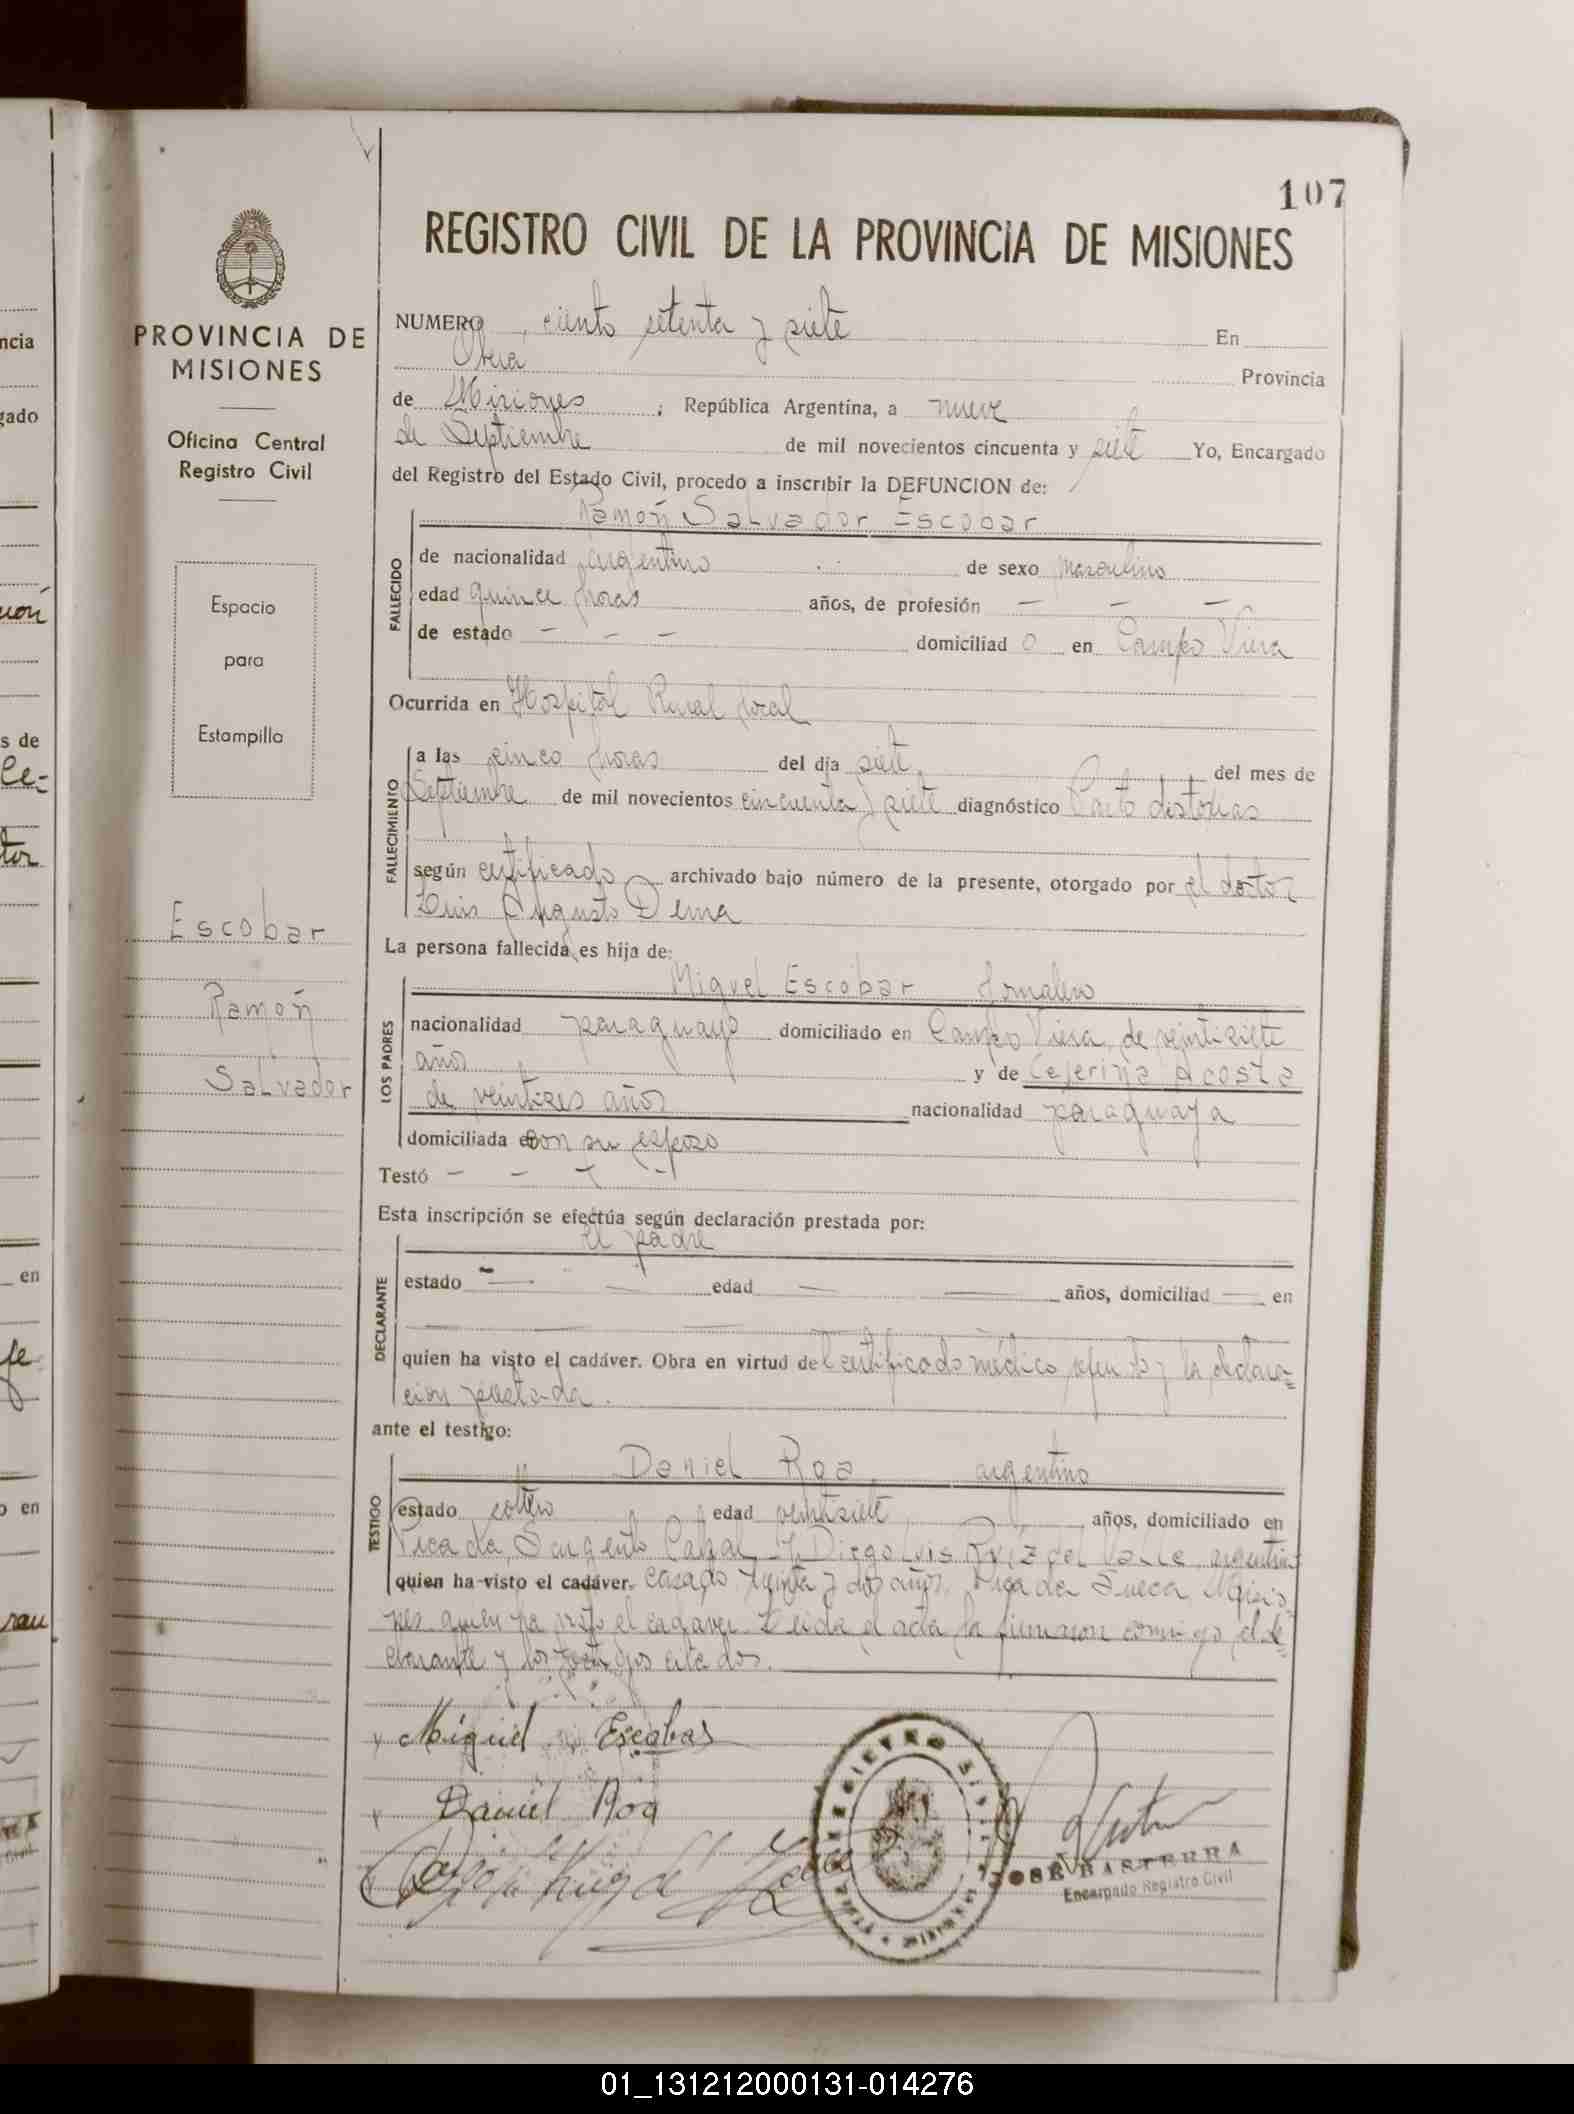 107
REGISTRO CIVIL DE LA PROVINCIA DE MISIONES
PROVINCIA DE
MISIONES
Oficina Central
Registro Civil
Espacio
para
Estampilla
Escobar
Ramón
Salvador
NUMERO ciento setenta y siete En
Oberá Provincia
de Misiones ; República Argentina, a nueve
de Septiembre de mil novecientos cincuenta y siete Yo, Encargado
del Registro del Estado Civil, procedo a inscribir la DEFUNCION de:
Ramón Salvador Escobar
FALLECIDO
de nacionalidad argentino de sexo masculino
edad quince horas años, de profesión — — —
de estado — — — domiciliad o en Campo Viera
Ocurrida en Hospital Rural local
FALLECIMIENTO
a las cinco horas del día siete del mes de
Septiembre de mil novecientos cincuenta y siete diagnóstico Parto distocias
según certificado archivado bajo número de la presente, otorgado por el doctor
Luis Augusto Derna
La persona fallecida es hija de:
LOS PADRES
Miguel Escobar Jornalero
nacionalidad paraguayo domiciliado en Campo Viera, de veintisiete
años y de Ceferina Acosta
de veintitres años nacionalidad paraguaya
domiciliada con su esposo
Testó — — — —
Esta inscripción se efectúa según declaración prestada por:
el padre
DECLARANTE
estado — — edad — — años, domiciliad — en
quien ha visto el cadáver. Obra en virtud del certificado médico, adjunto y la declara=
ción prestada.
ante el testigo:
Daniel Roa, argentino
TESTIGO
estado soltero edad veintisiete años, domiciliado en
Picada Sargento Cabral y Diego Luis Ruiz del Valle, argentino
quien ha visto el cadáver. casado, treinta y dos años, Picada Sueca, Misio=
nes quien ha visto el cadaver. Leida el acta la firmaron conmigo, el de=
clarante y los testigos citados.
Miguel Escobar
Daniel Roa
JOSE BASTERRA
Encargado Registro Civil
01_131212000131-014276